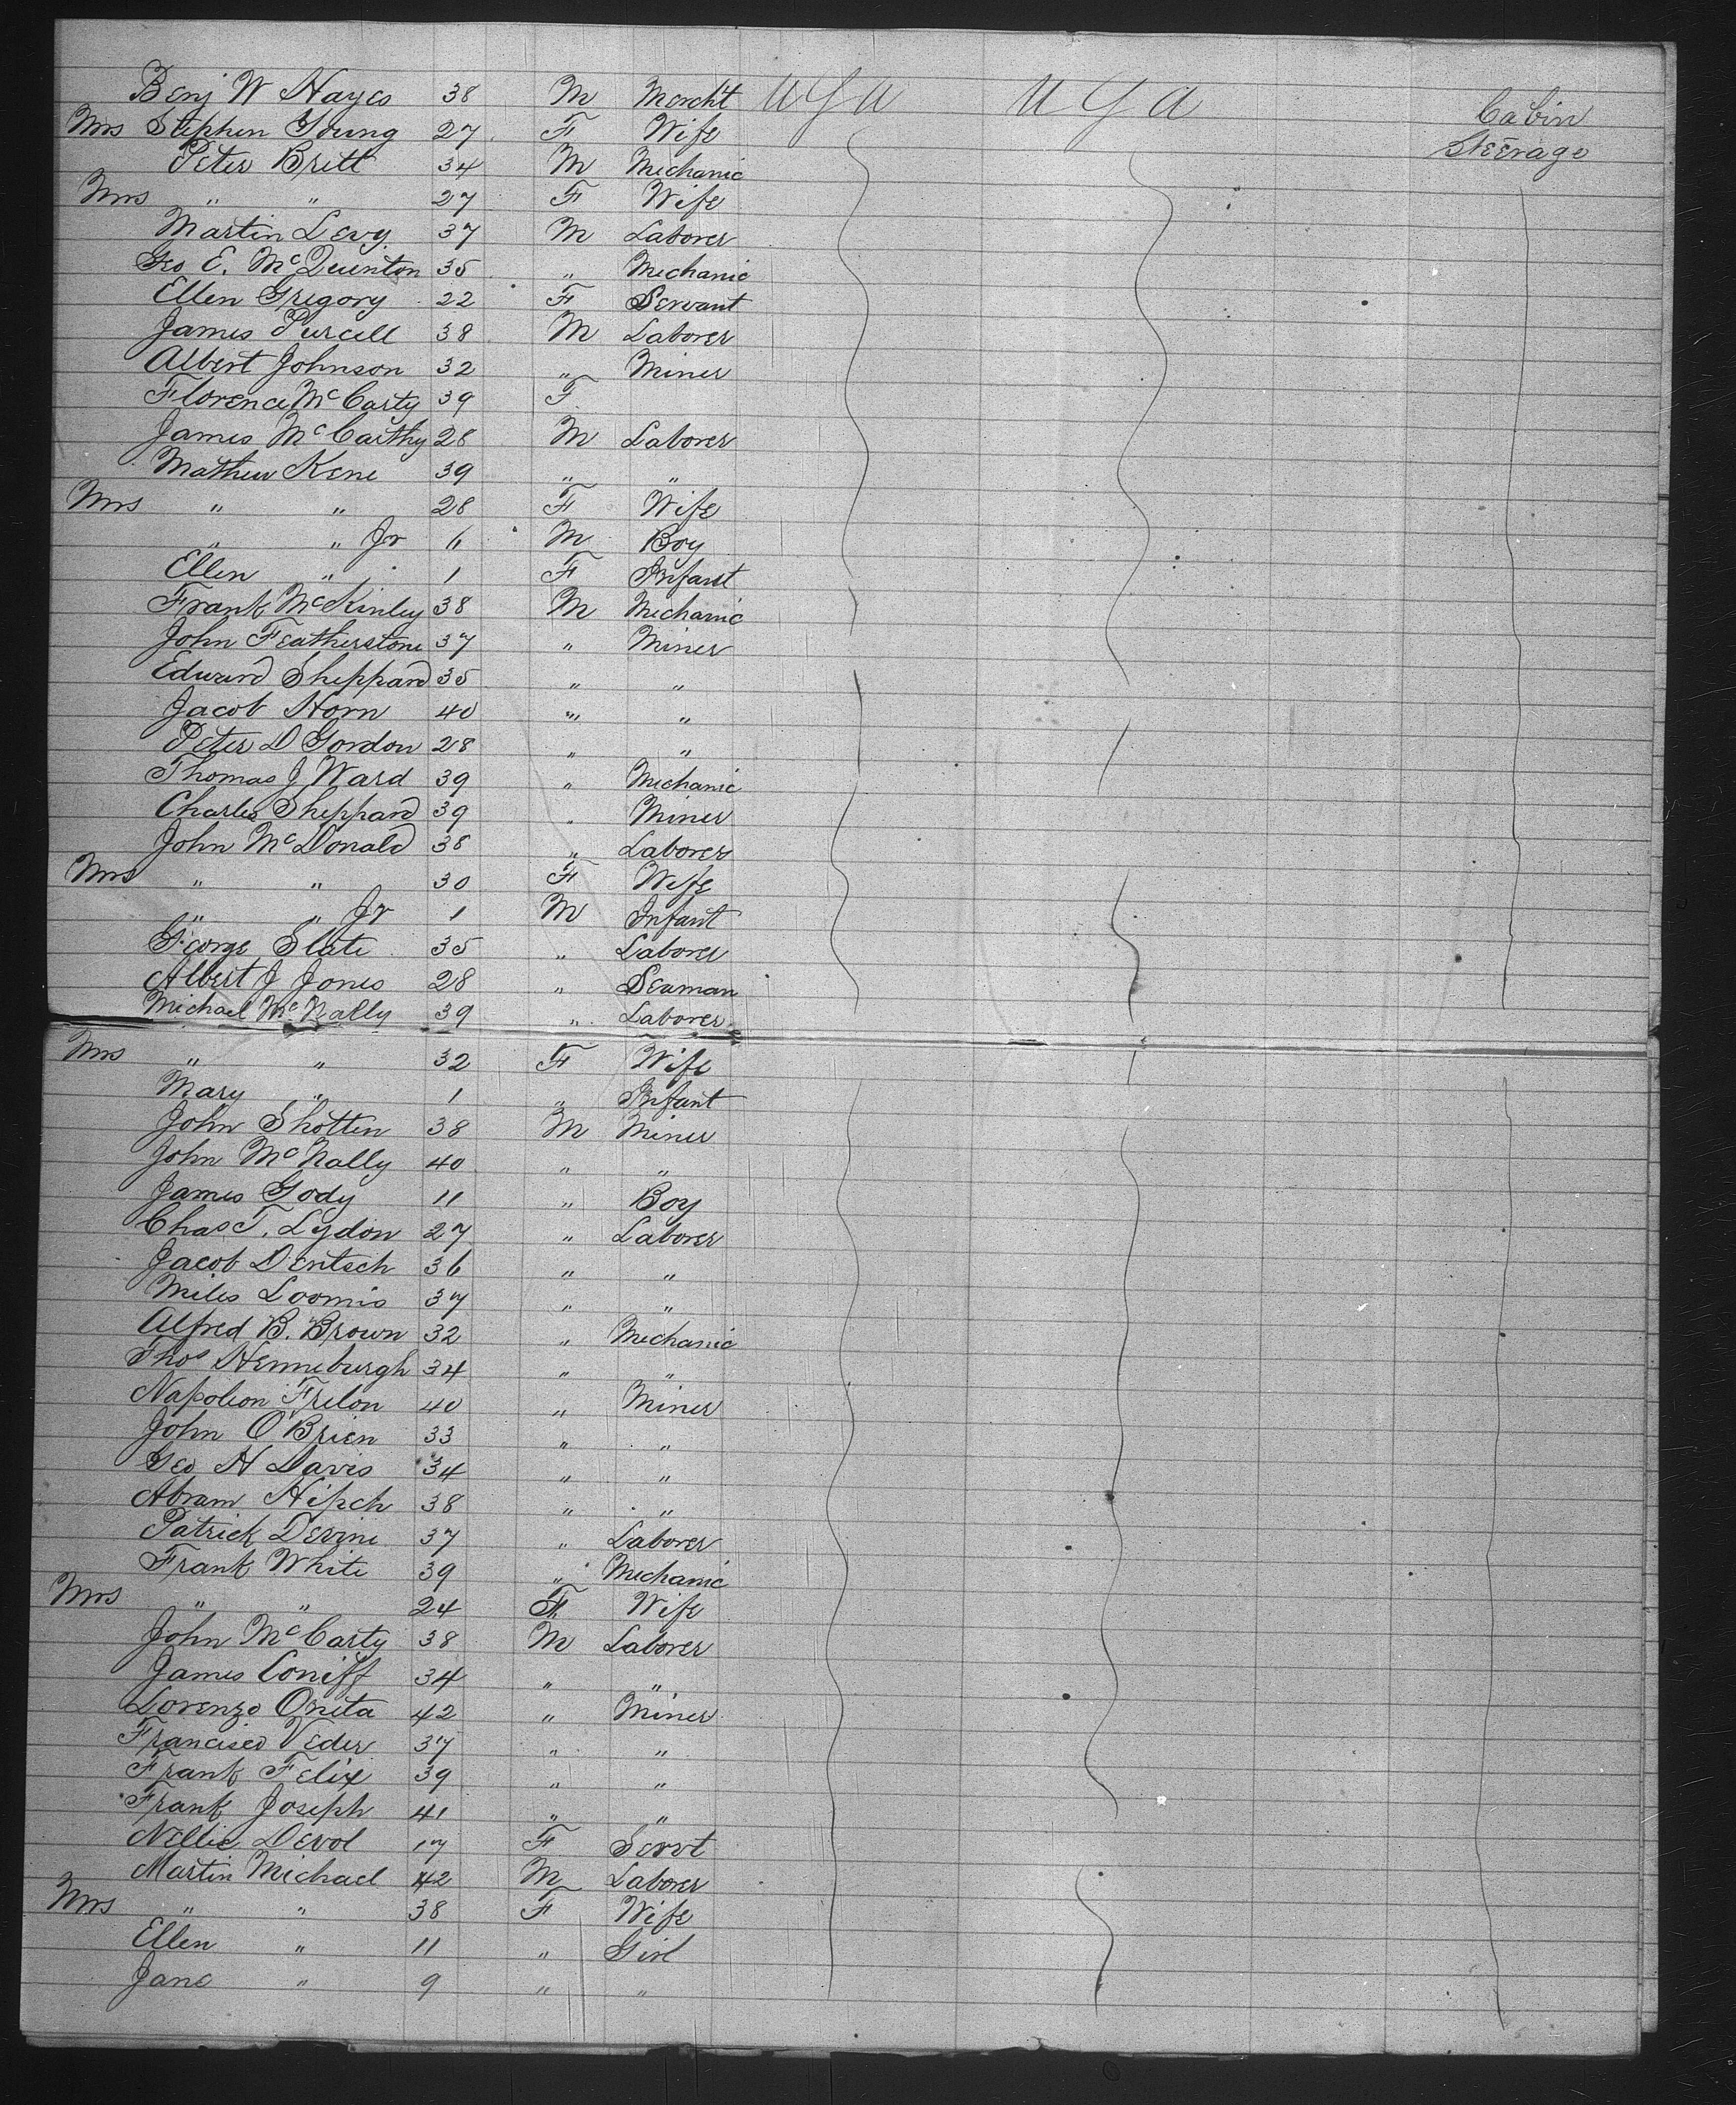 Benj W Hayes 38 M Mercht U S A U S A Cabin
Mrs Stephen Young 27 F Wife Steerage
Peter Britt 34 M Mechanic
Mrs " " 27 F Wife
Martin Levy 37 M Laborer
Geo E. McQuinton 35 " Mechanic
Ellen Gregory 22 F Servant
James Purcell 38 M Laborer
Albert Johnson 32 " Miner
Florence McCarty 39 F
James McCarthy 28 M Laborer
Mathew Kene 39 " "
Mrs " " 28 F Wife
" " Jr 6 M Boy
Ellen " 1 F Infant
Frank McKinley 38 M Mechanic
John Featherstone 37 " Miner
Edward Sheppard 35 " "
Jacob Horn 40 " "
Peter D Gordon 28 " "
Thomas J Ward 39 " Mechanic
Charles Sheppard 39 " Miner
John McDonald 38 " Laborer
Mrs " " 30 F Wife
" " Jr 1 M Infant
George Slate 35 " Laborer
Albert J Jones 28 " Seaman
Michael McNally 39 " Laborer
Mrs " " 32 F Wife
Mary " 1 " Infant
John Shotten 38 M Miner
John McNally 40 " "
James Gody 11 " Boy
Chas T. Lydon 27 " Laborer
Jacob Dentsch 36 " "
Miles Loomis 37 " "
Alfred B. Brown 32 " Mechanic
Thos Henneburgh 34 " "
Napoleon Frelon 40 " Miner
John O'Brien 33 " "
Geo H Davis 34 " "
Abram Hipch 38 " "
Patrick Devine 37 " Laborer
Frank White 39 " Mechanic
Mrs " " 24 F Wife
John McCarty 38 M Laborer
James Coniff 34 " "
Lorenzo Oneta 42 " Miner
Francisco Veder 37 " "
Frank Felix 39 " "
Frank Joseph 41 " "
Nellie Devol 17 F Servt
Martin Michael 42 M Laborer
Mrs " " 38 F Wife
Ellen " 11 " Girl
Jane " 9 " "